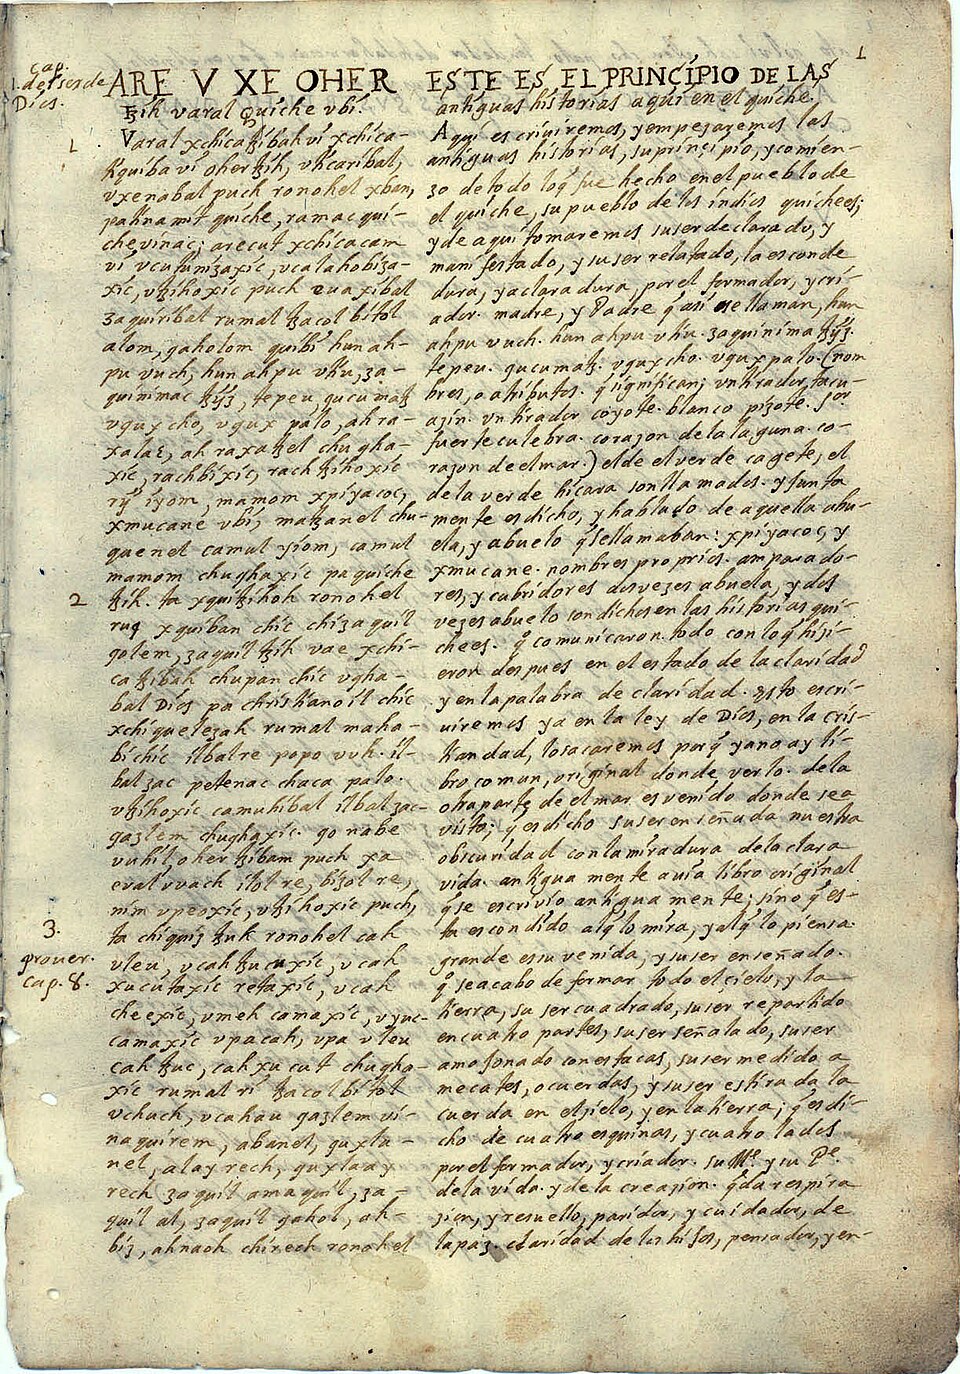 1
cap.
1. del ser de
Dios.
ARE V XE OHER
ꜩíh varal Quíche vbí.
1
Varal xchícaꜩíbah ví xchíca-
tíquíba ví oher ꜩíh, vtícaríbal,
vxenabal puch ronohel xban,
pa tínamít quíche, ramac quí-
che vínac; arecut xchícacam
ví vcutuníзaxíc, vcalahobíзa-
xíc, vꜩíhoxíc puch euaxíbal
зaquíríbal rumal ꜩacol bítol
alom, qaholom quíbí hun ah-
pu vuch, hun ahpu vtíu, зa-
quí nímac ꜩÿз, tepeu, qucumaꜩ
vqux cho, vqux palo, ah ra-
xa la3, ah raxa ꜩel chugha-
xíc, rachbíxíc, rachꜩíhoxíc
rÿ íyom, mamom xpíyacoc,
xmucane vbí, maꜩanel chu-
quenel camul yíom, camul
mamom chughaxíc pa quíche
2
ꜩíh. ta xquíꜩíhoh ronohel
ruq xquíban chíc chí зaquíl
qolem, зaquíl ꜩíh vae xchí-
caꜩíbah chupan chíc vgha-
bal Díos pa chrístíanoíl chíc
xchíqueleзah rumal maha-
bíchíc ílbal re popo vuh. íl-
bal зac petenac chaca palo.
vꜩíhoxíc camuhíbal ílbal зac-
qaзlem chughaxíc. qo nabe
vuhíl, oher ꜩíbam puch xa
eval vvach ílol re, bíзol re,
ním vpeoxíc, vꜩíhoxíc puch,
3.
prouer.
cap. 8.
ta chíquíз ꜩuk ronohel cah
vleu, vcah ꜩucuxíc, vcah
xucutaxíc retaxíc, vcah
cheexíc, vmeh camaxíc, vyuc-
camaxíc vpa cah, vpa vleu
cah ꜩuc, cah xucut chugha-
xíc rumal rí ꜩacol bítol
vchuch, vcahau qaзlem ví-
naquírem, abanel, quxla-
nel, alay rech, quxlaay
rech зaquíl amaquíl, зa-
quíl al, зaquíl qahol, ah-
bíз, ahnaoh chírech ronohel
ESTE ES EL PRINCIPIO DE LAS
antíguas hístorías aquí en el quíche.
Aquí escríuíremos, y empeзaremos las
antíguas hístorías, su príncípío, y comíen-
зo de todo lo q̃ fue hecho en el pueblo de
el quíche, su pueblo de los índíos quíchees;
y de aquí tomaremos su ser declarado, y
manífestado, y su ser relatado, la esconde
dura, y aclaradura, por el formador, y crí-
ador. madre, y Padre q̃ así se llaman, hun
ahpu vuch. hun ahpu vtíu. зaquí níma ꜩÿз.
tepeu. qucumaꜩ. vqux cho. vqux palo. (nom
bres, o atríbutos. q̃ sígnífícan; vn tírador, tacu-
aзín. vn tírador coyote. blanco píзote. Sor
fuerte culebra. coraзon de la laguna. co-
raзon de el mar.) el de el verde caxete, el
de la verde hícara son llamados. y junta
mente es dícho, y hablado de aquella abu-
ela, y abuelo q̃ se llamaban: xpíyacoc, y
xmucane. nombres propríos. amparado-
res, y cubrídores dos veзes abuela, y dos
veзes abuelo son díchos en las hístorías quí-
chees. q̃ comunícaron todo con lo q̃ híзí-
eron despues en el estado de la clarídad
y en la palabra de clarídad. Esto escrí-
uíremos ya en la ley de Díos, en la crís-
tíandad, lo sacaremos porq̃ ya no ay lí-
bro comun, orígínal donde verlo. de la
otra parte de el mar es venído donde sea
vísto; q̃ es dícho su ser enseñada nuestra
obscurídad con la míradura de la clara
vída. antígua mente auía líbro orígínal
q̃ se escrívío antígua mente; síno q̃ es-
ta escondído al q̃ lo míra, y al q̃ lo píensa.
grande es su venída, y su ser enseñado.
q̃ se acabo de formar todo el çíelo, y la
tíerra, su ser cuadrado, su ser repartído
en cuatro partes, su ser señalado, su ser
amojonado con estacas, su ser medído a
mecates, o cuerdas, y su ser estírada la
cuerda en el çíelo, y en la tíerra; q̃ es dí-
cho de cuatro esquínas, y cuatro lados
por el formador, y críador. su Mᵉ. y su Pᵉ.
de la vída. y de la creaзíon. q̃ da respíra
зíon, y resuello, parídor, y cuídador, de
la paз. clarídad de los híjos, pensador, y en-